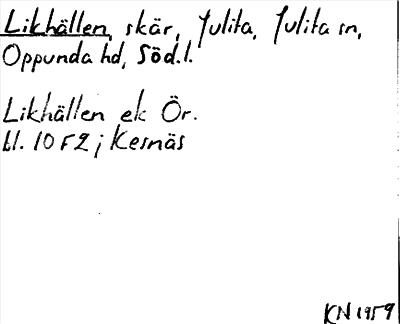 Likhällen, skär, Julita, Julita sn,
Oppunda hd, Söd.l.
Likhällen ek Ör.
bl. 10 F2 ; Kesnäs
KN 1959